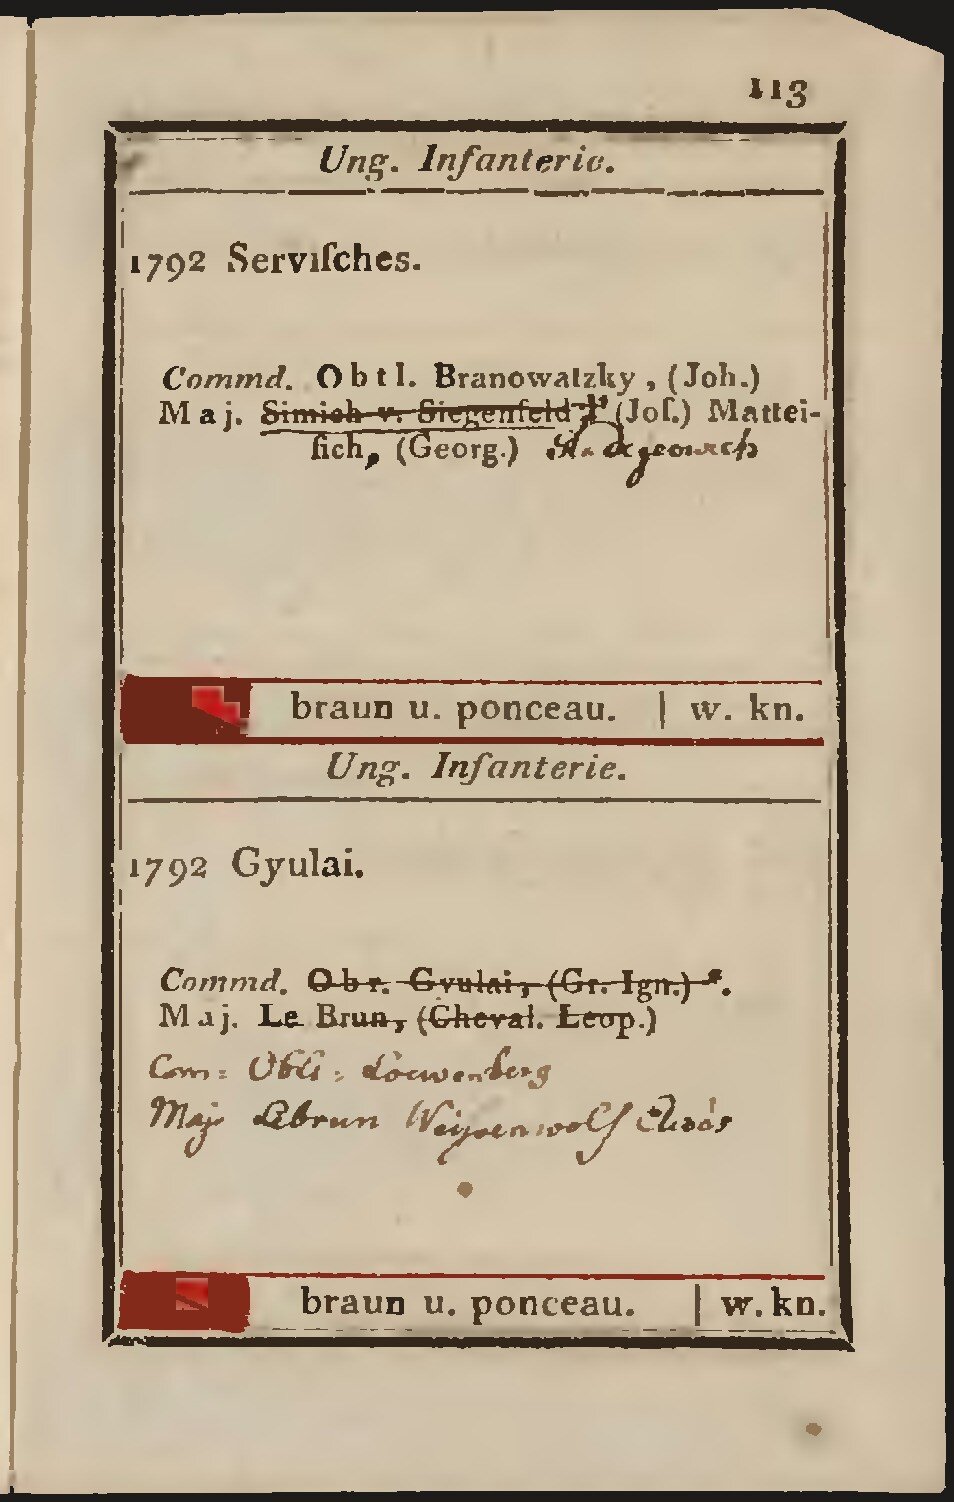 113
Ung. Infanterie.
1792 Serviſches.
Commd. Obtl. Branowatzky, (Joh.)
Maj. Simich v. Siegenfeld (Joſ.) Mattei-
ſich, (Georg.)
braun u. ponceau. | w. kn.
Ung. Infanterie.
1792 Gyulai.
Commd. Obr. Gyulai, (Gr. Ign.) *.
Maj. Le Brun, (Cheval. Leop.)
Com: Obtl: Loewenberg
Maj Lebrun
braun u. ponceau. | w. kn.